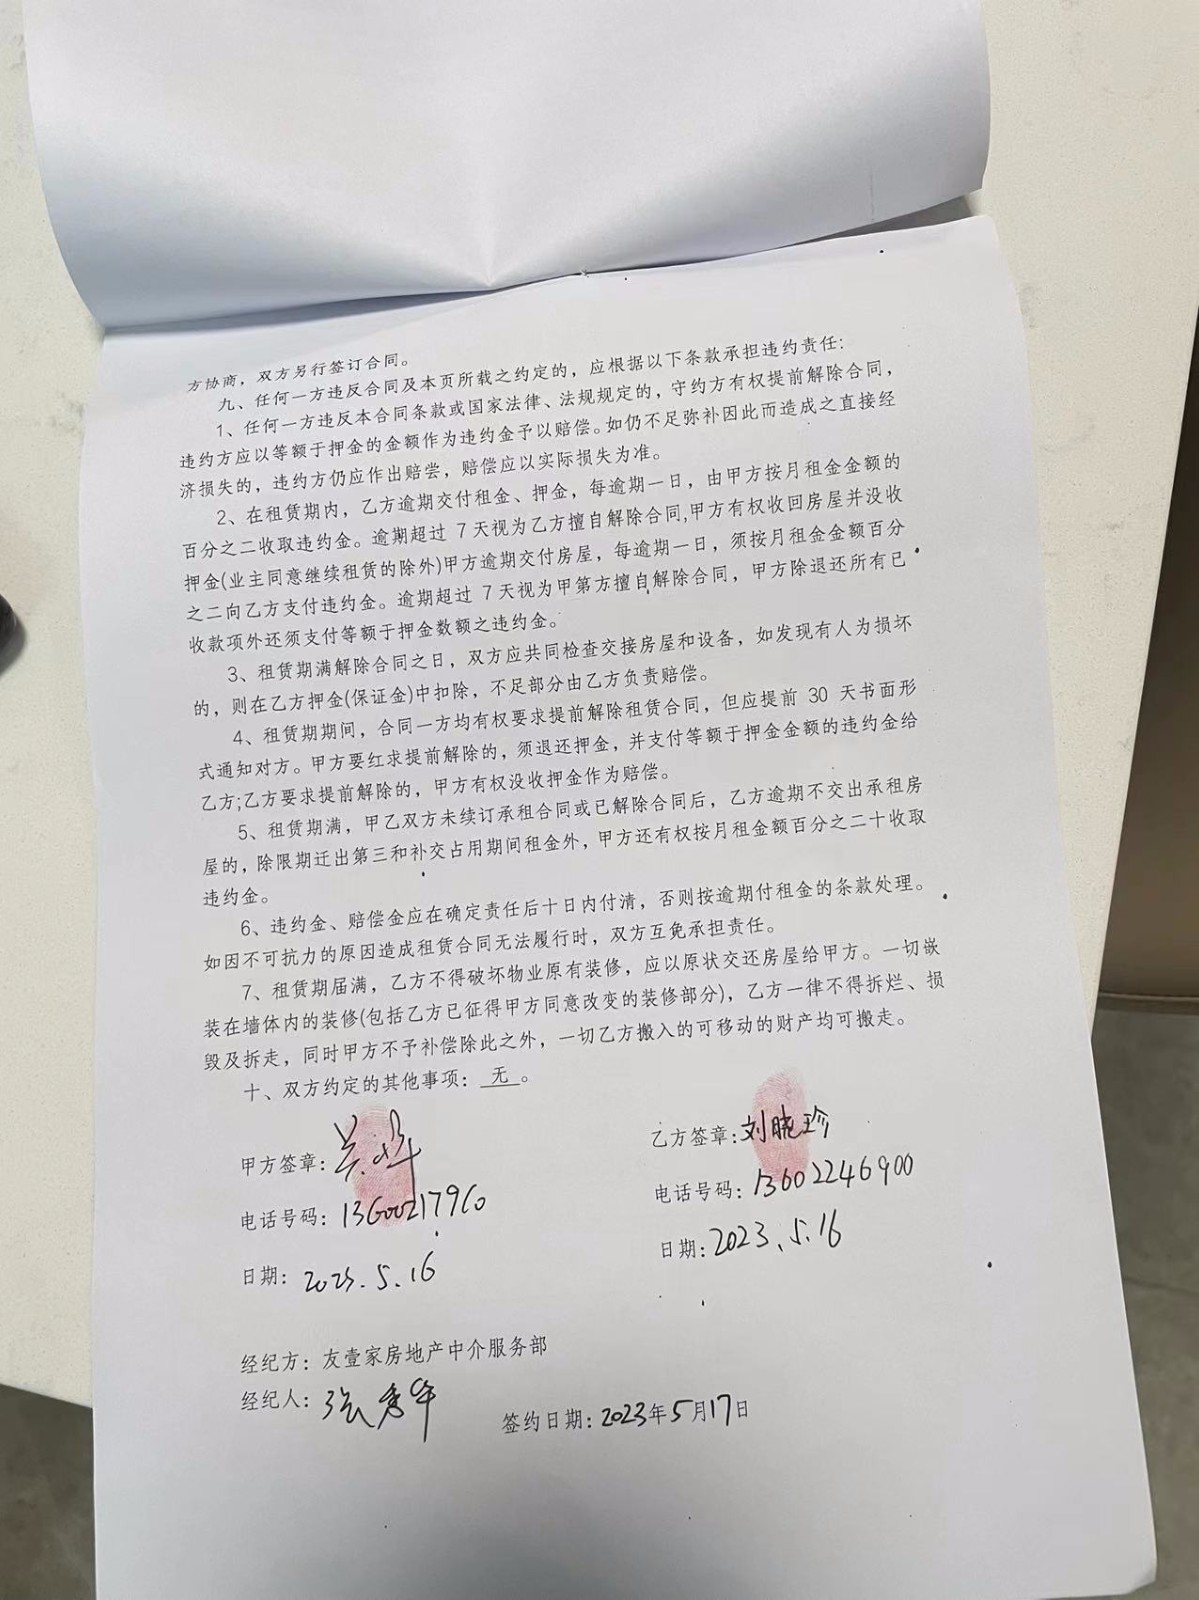 方协商，双方另行签订合同。
九、任何一方违反合同及本页所载之约定的，应根据以下条款承担违约责任:
1、任何一方违反本合同条款或国家法律、法规规定的，守约方有权提前解除合同，
违约方应以等额于押金的金额作为违约金予以赔偿。如仍不足弥补因此而造成之直接经
济损失的，违约方仍应作出赔偿，赔偿应以实际损失为准。
2、在租赁期内，乙方逾期交付租金、押金，每逾期一日，由甲方按月租金金额的
百分之二收取违约金。逾期超过 7 天视为乙方擅自解除合同,甲方有权收回房屋并没收
押金(业主同意继续租赁的除外)甲方逾期交付房屋，每逾期一日，须按月租金金额百分
之二向乙方支付违约金。逾期超过 7 天视为甲第方擅自解除合同，甲方除退还所有已
收款项外还须支付等额于押金数额之违约金。
3、租赁期满解除合同之日，双方应共同检查交接房屋和设备，如发现有人为损坏
的，则在乙方押金(保证金)中扣除，不足部分由乙方负责赔偿。
4、租赁期期间，合同一方均有权要求提前解除租赁合同，但应提前 30 天书面形
式通知对方。甲方要红求提前解除的，须退还押金，并支付等额于押金金额的违约金给
乙方;乙方要求提前解除的，甲方有权没收押金作为赔偿。
5、租赁期满，甲乙双方未续订承租合同或已解除合同后，乙方逾期不交出承租房
屋的，除限期迁出第三和补交占用期间租金外，甲方还有权按月租金额百分之二十收取
违约金。
6、违约金、赔偿金应在确定责任后十日内付清，否则按逾期付租金的条款处理。
如因不可抗力的原因造成租赁合同无法履行时，双方互免承担责任。
7、租赁期届满，乙方不得破坏物业原有装修，应以原状交还房屋给甲方。一切嵌
装在墙体内的装修(包括乙方已征得甲方同意改变的装修部分)，乙方一律不得拆烂、损
毁及拆走，同时甲方不予补偿除此之外，一切乙方搬入的可移动的财产均可搬走。
十、双方约定的其他事项：无。
甲方签章：
乙方签章：刘晓珍
电话号码：13600217960
电话号码：13602246900
日期：2023.5.16
日期：2023.5.16
经纪方：友壹家房地产中介服务部
经纪人：张秀华
签约日期：2023年5月17日